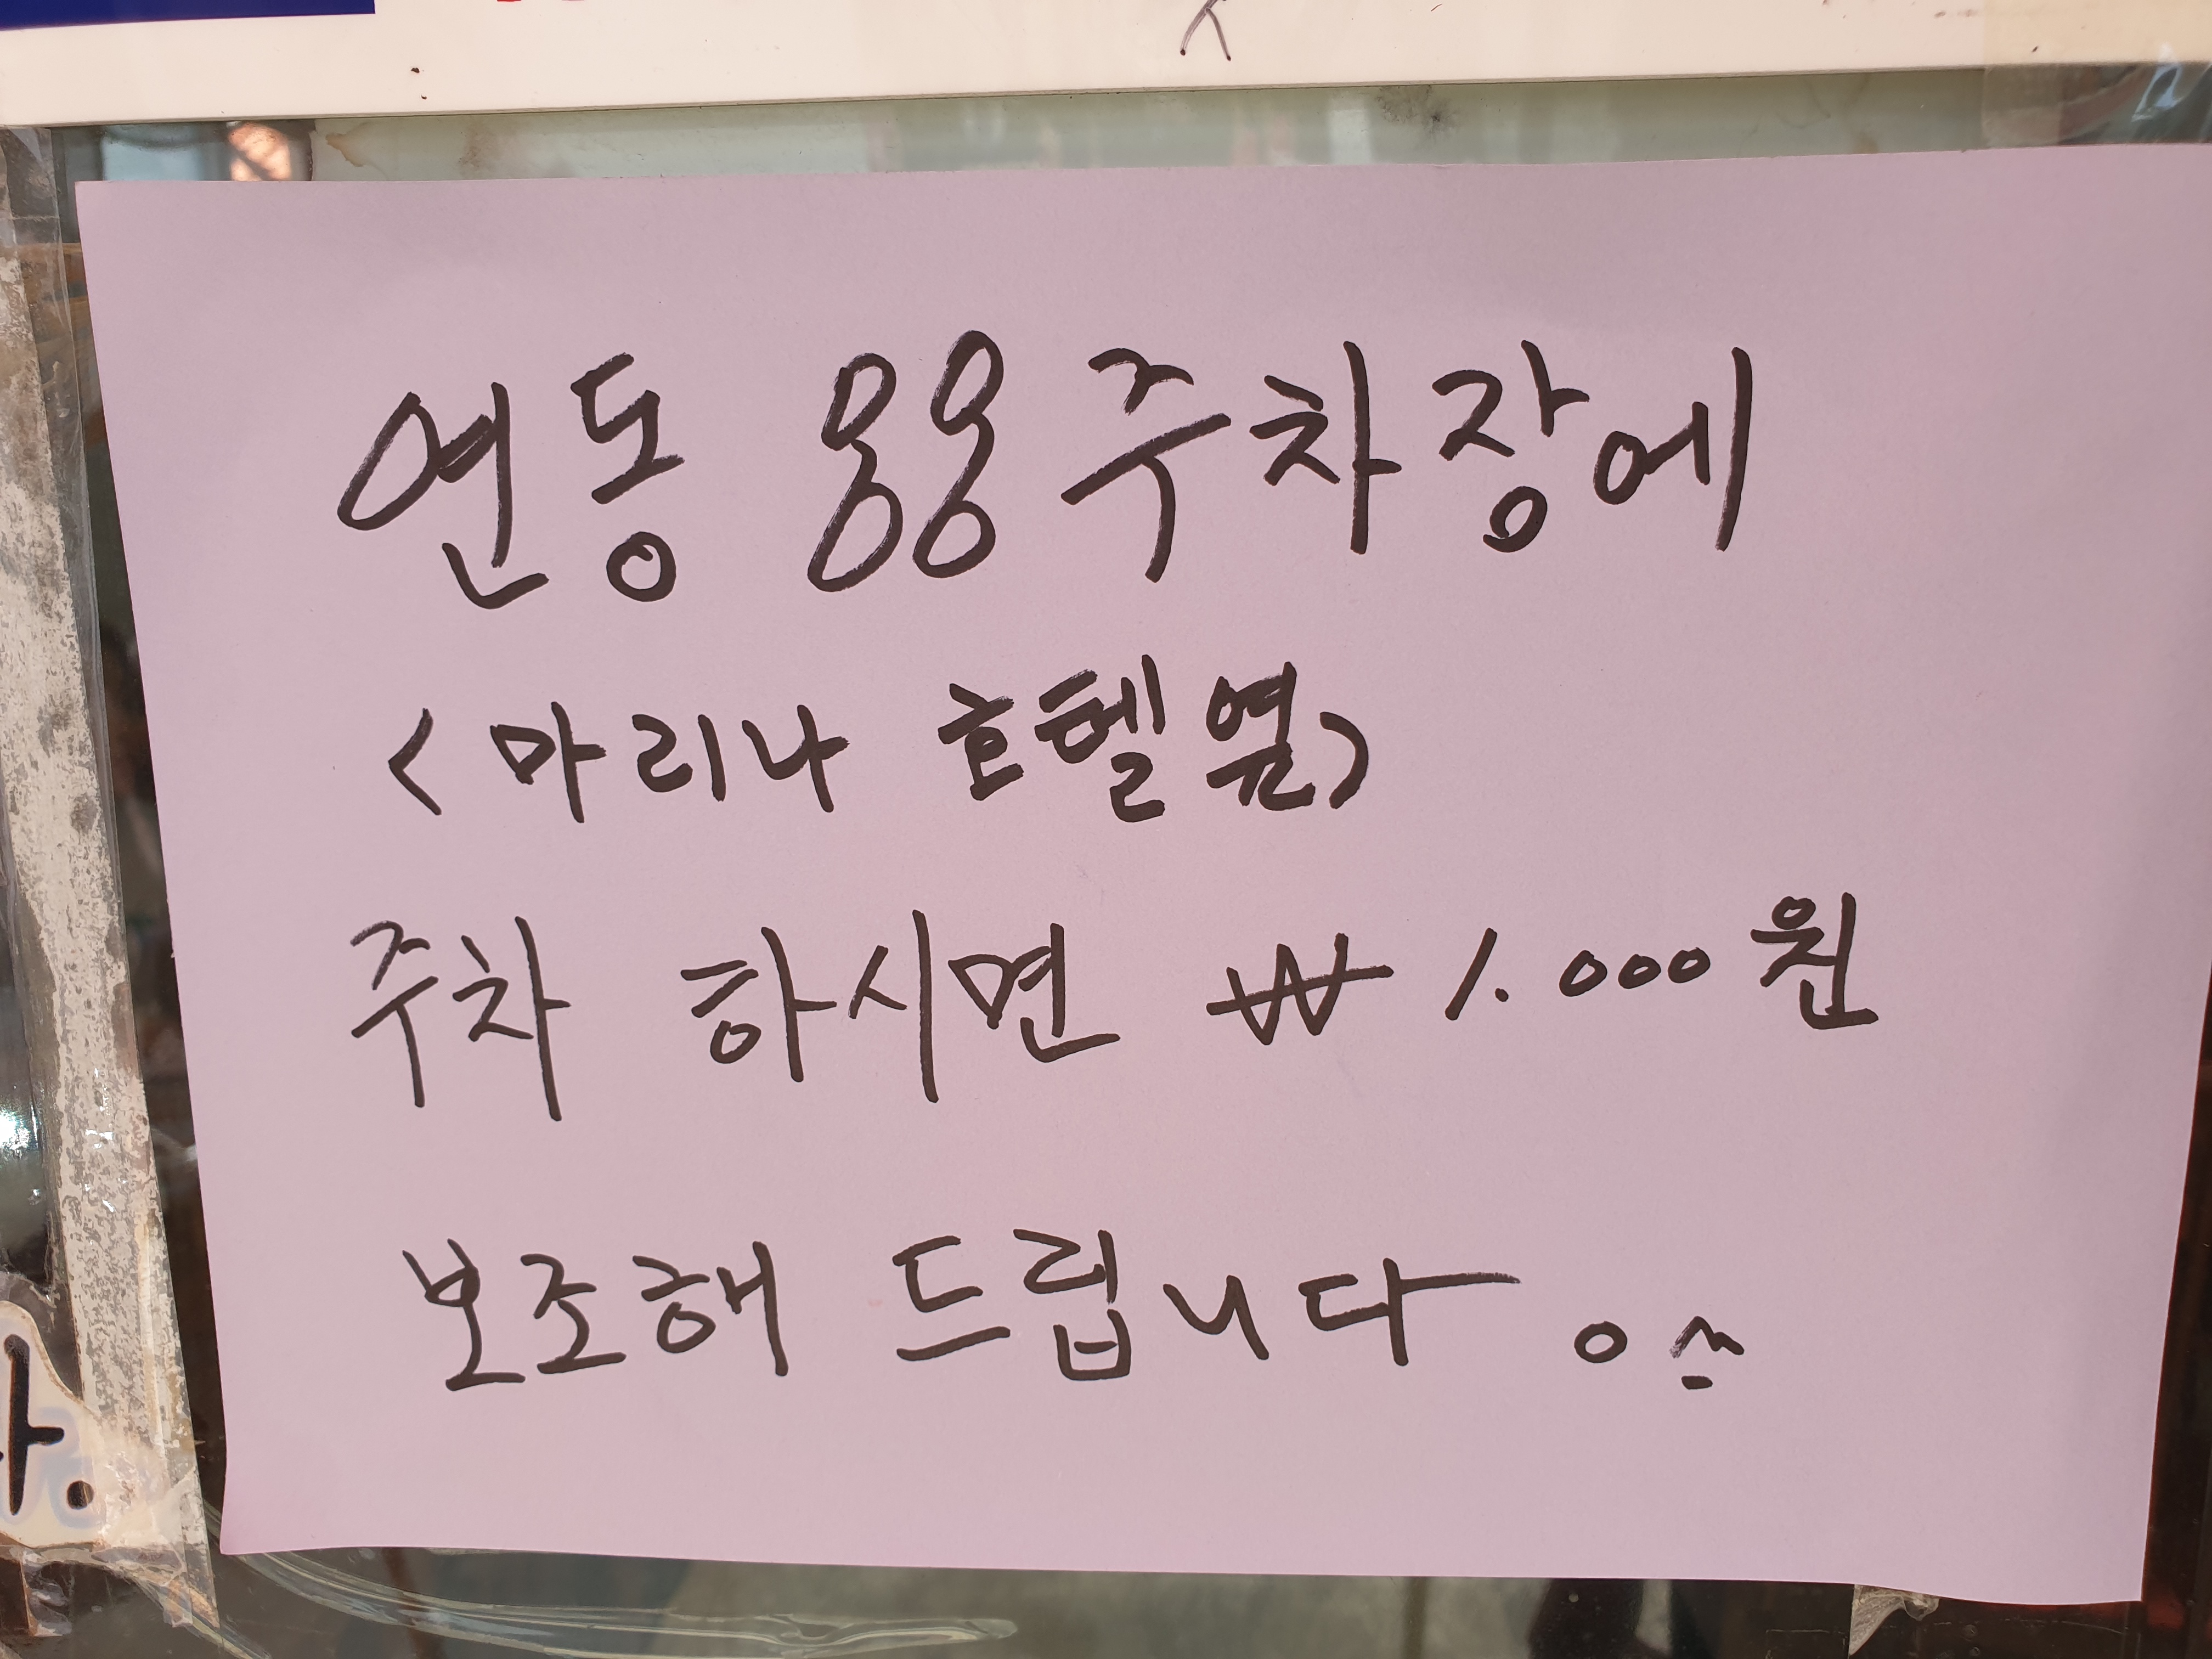 연동 88주차장에
<마리나 호텔옆)
주차 하시면 ₩ 1.000원
보조해 드립니다 。